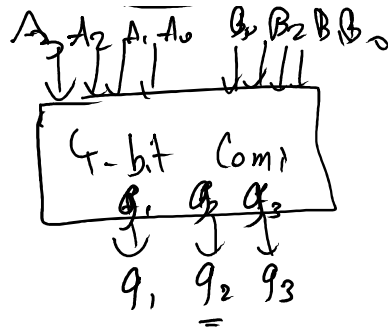 A₃ A₂ A₁ A₀ B₃ B₂ B₁ B₀
4-bit Com
g₁ g₂ g₃
g₁ g₂ g₃